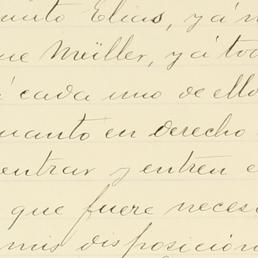 uinto Elias, y á
que Müller, y á tod
á cada uno de ello
uanto en derecho
entrar y entren e
que fuere neces
mis disposicion